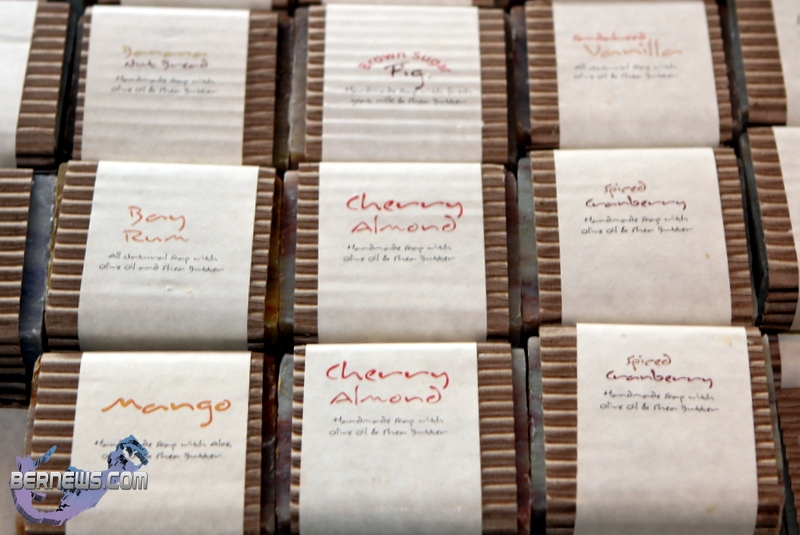 Banana
Nut Bread
Handmade Soap with
Olive Oil & Shea Butter
Brown Sugar
Fig
Handmade Soap with
goats milk & Shea Butter
Sandalwood
Vanilla
All Natural Soap with
Olive Oil & Shea Butter
Bay
Rum
All Natural Soap with
Olive Oil and Shea Butter
Cherry
Almond
Handmade Soap with
Olive Oil & Shea Butter
Spiced
Cranberry
Handmade Soap with
Olive Oil & Shea Butter
Mango
Handmade Soap with Aloe,
Oil & Shea Butter
Cherry
Almond
Handmade Soap with
Olive Oil & Shea Butter
Spiced
Cranberry
Handmade Soap with
Olive Oil & Shea Butter
BERNEWS.COM